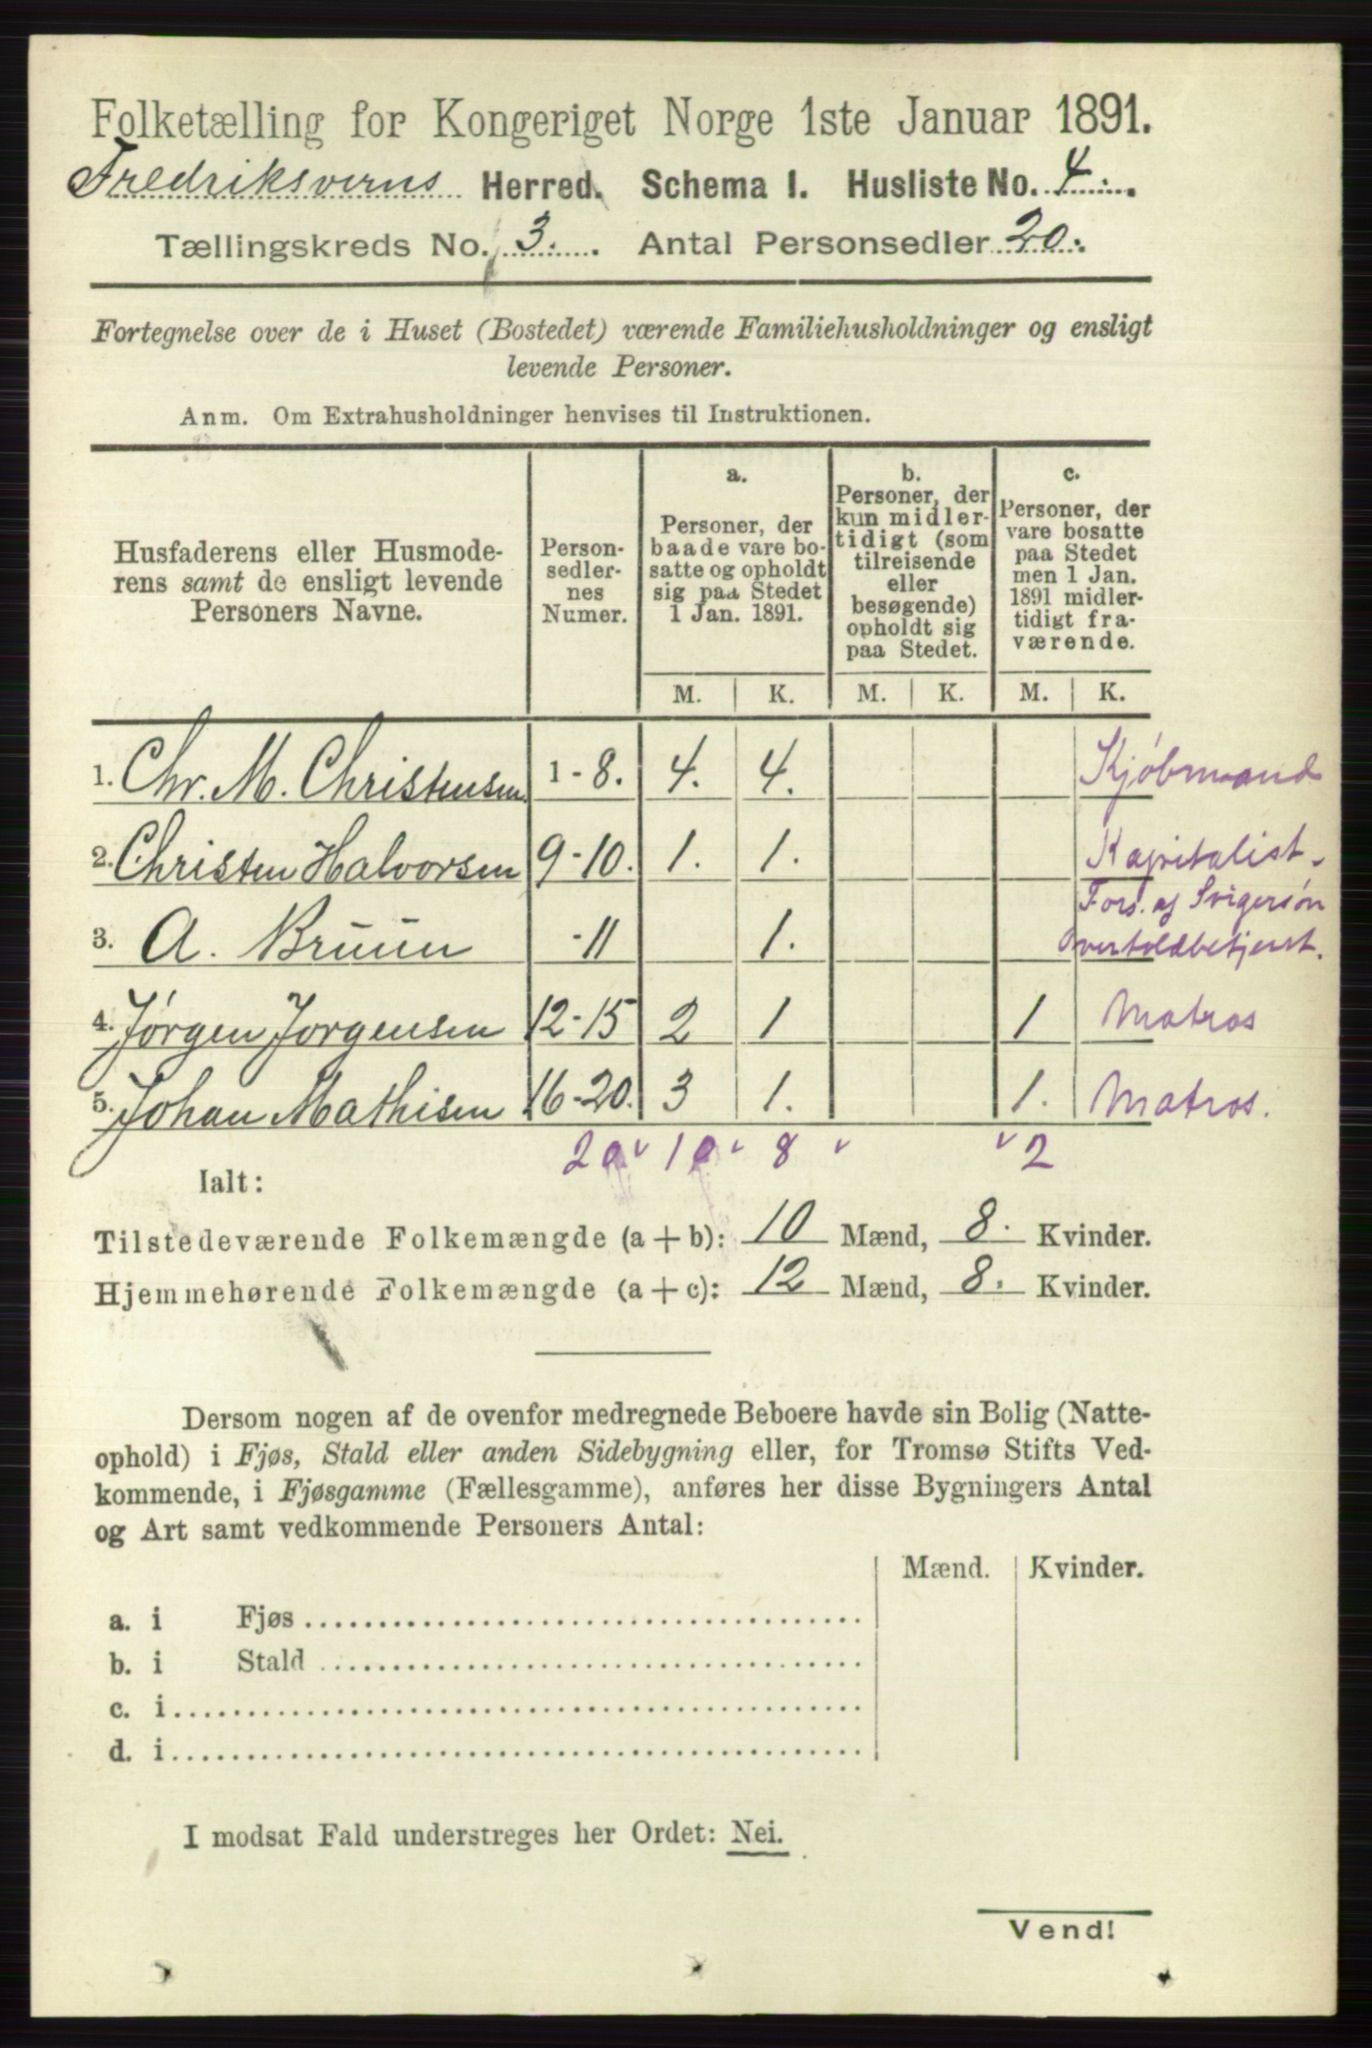 Folketælling for Kongeriget Norge 1ste Januar 1891.
Fredriksverns Herred. Schema I. Husliste No. 4.
Tællingskreds No. 3. Antal Personsedler 20.
Fortegnelse over de i Huset (Bostedet) værende Familiehusholdninger og ensligt
levende Personer.
Anm. Om Extrahusholdninger henvises til Instruktionen.
Husfaderens eller Husmode-
rens samt de ensligt levende
Personers Navne.
Person-
sedler-
nes
Numer.
a.
Personer, der
baade vare bo-
satte og opholdt
sig paa Stedet
1 Jan. 1891.
b.
Personer, der
kun midler-
tidigt (som
tilreisende
eller
besøgende)
opholdt sig
paa Stedet.
c.
Personer, der
vare bosatte
paa Stedet
men 1 Jan.
1891 midler-
tidigt fra-
værende.
M. K. M. K. M. K.
1. Chr. M. Christensen 1-8. 4. 4. Kjøbmand
2. Christen Halvorsen 9-10. 1. 1. Kapitalist.
3. A. Bruun -11 1. Fors. af Svigersøn
Overtoldbetjent.
4. Jørgen Jørgensen 12-15 2 1 1 Matros
5. Johan Mathisen 16-20. 3 1. 1. Matros.
20 10 8 2
Ialt:
Tilstedeværende Folkemængde (a + b): 10 Mænd, 8. Kvinder.
Hjemmehørende Folkemængde (a + c): 12 Mænd, 8. Kvinder.
Dersom nogen af de ovenfor medregnede Beboere havde sin Bolig (Natte-
ophold) i Fjøs, Stald eller anden Sidebygning eller, for Tromsø Stifts Ved-
kommende, i Fjøsgamme (Fællesgamme), anføres her disse Bygningers Antal
og Art samt vedkommende Personers Antal:
Mænd. Kvinder.
a. i Fjøs
b. i Stald
c. i
d. i
I modsat Fald understreges her Ordet: Nei.
Vend!